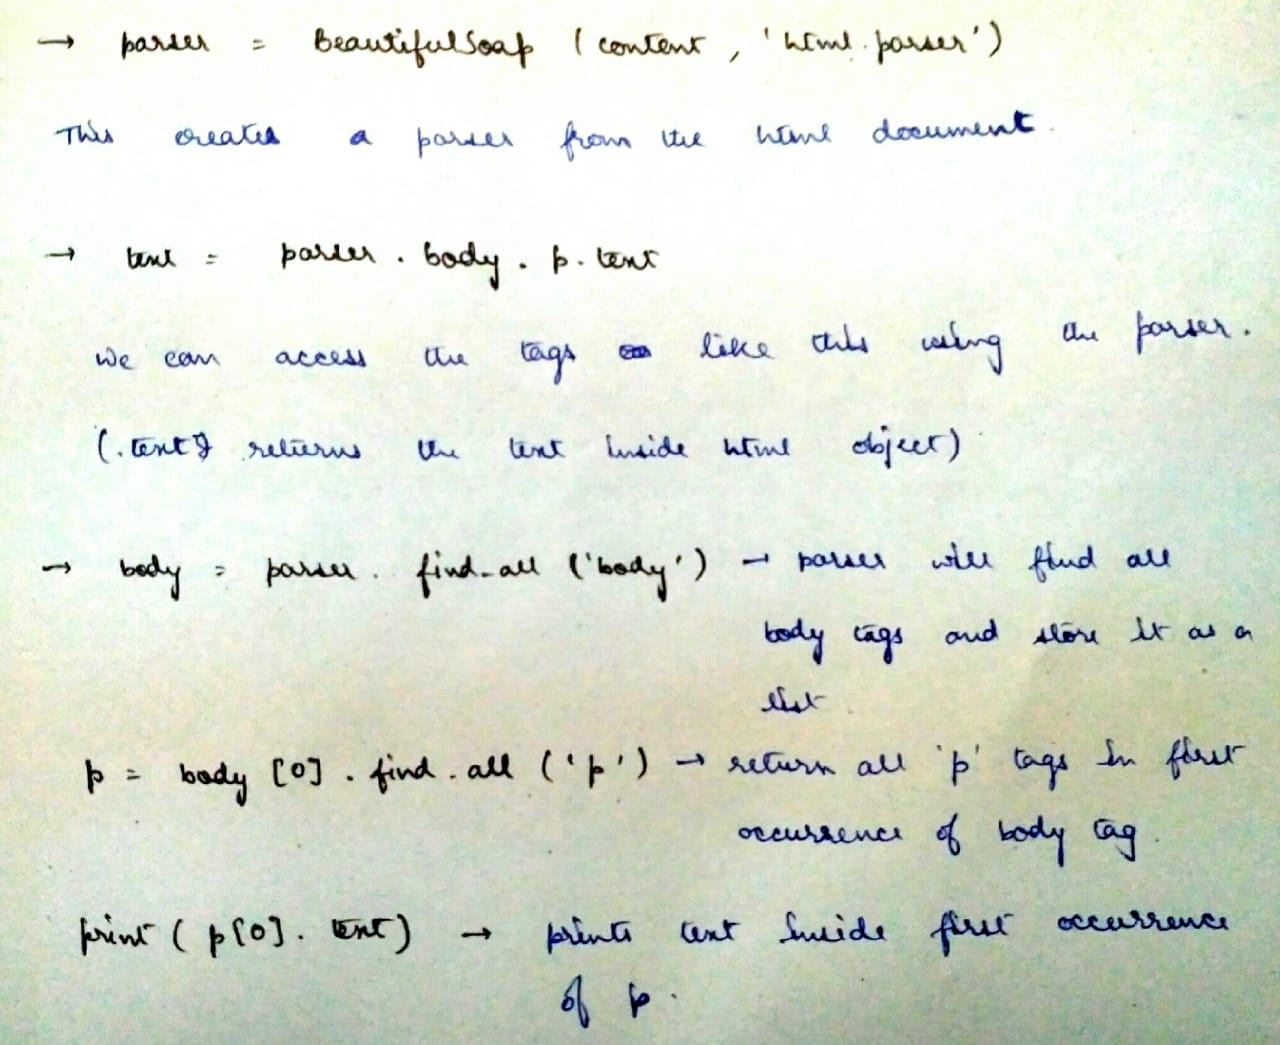 → parser = BeautifulSoap (content, 'html.parser')
This creates a parser from the html document.
→ text = parser.body.p.text
we can access the tags like this using the parser.
(.text returns the text inside html object)
→ body = parser.find_all ('body') → parser will find all
body tags and store it as a
list.
p = body [0].find.all ('p') → return all 'p' tags in first
occurrence of body tag.
print (p[0].text) → prints text inside first occurrence
of p.